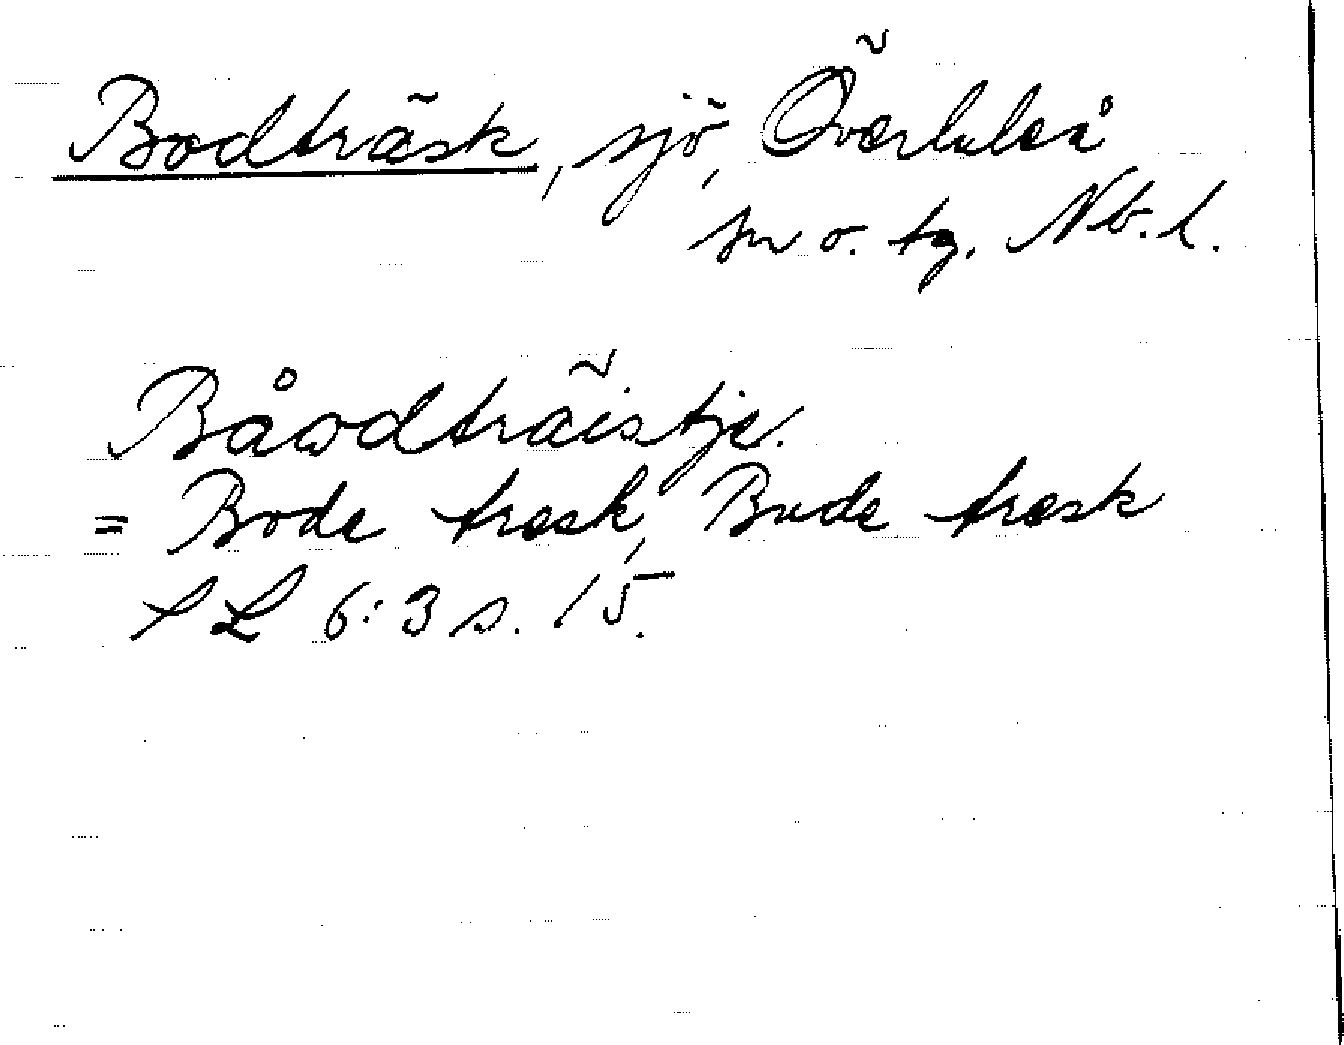 Bodträsk, sjö, Överluleå
sn o. tg. Nb. l.
Båwdträistje.
= Bode træsk, Bude træsk
SL 6:3 s. 15.